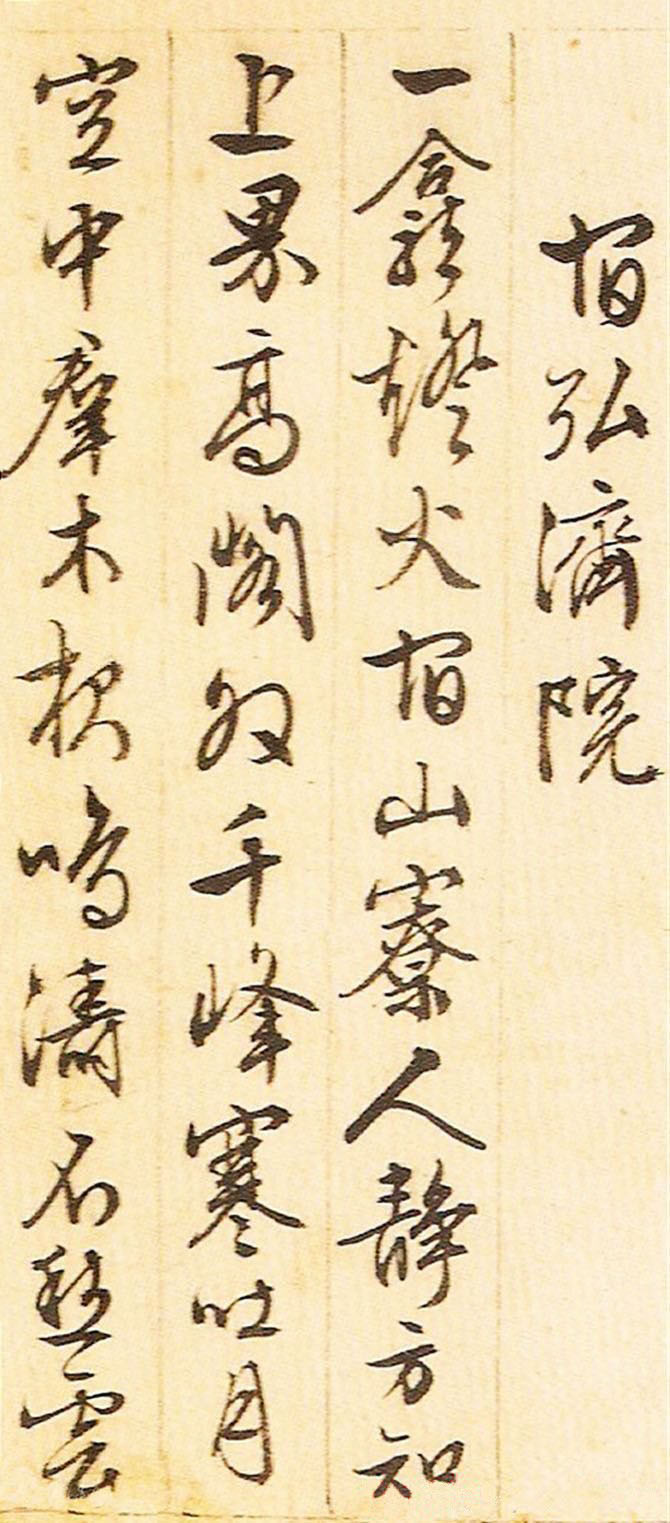 宿弘濟院
一龕燈火宿山寮人靜方知
上界高閣千峰寒吐月
空中羣木鳴濤石雲